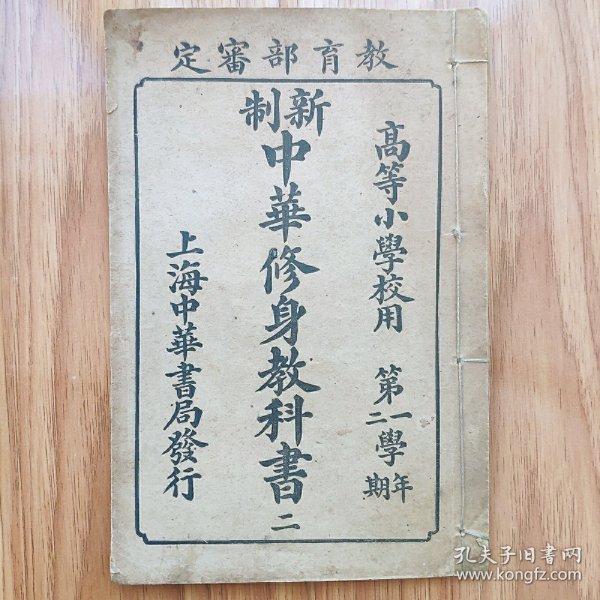 教育部審定
高等小學校用 第一學年 二學期
新制
中華修身教科書 二
上海中華書局發行
孔夫子旧书网
www.kongfz.com